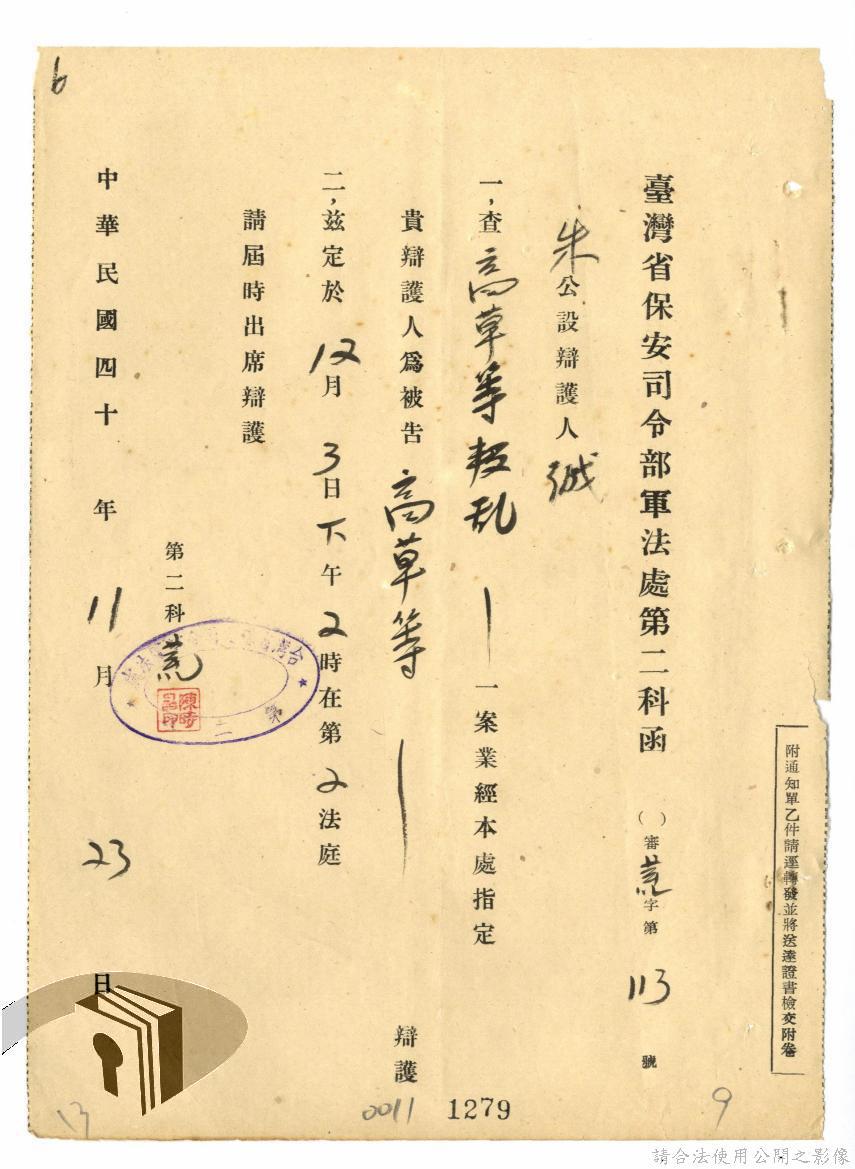 附通知單乙件請逕轉發並將送達證書檢交附卷
臺灣省保安司令部軍法處第二科函
( )審 字第 113 號
朱公設辯護人 誠
一,查 高草等叛乱 一案業經本處指定
貴辯護人爲被告 高草等 辯護
二,茲定於 12月 3日下午 2時在第 2法庭
請屆時出席辯護
第二科
陳時
印
第二
中華民國四十 年 11月 23日
6
13
0011
1279
9
請合法使用公開之影像